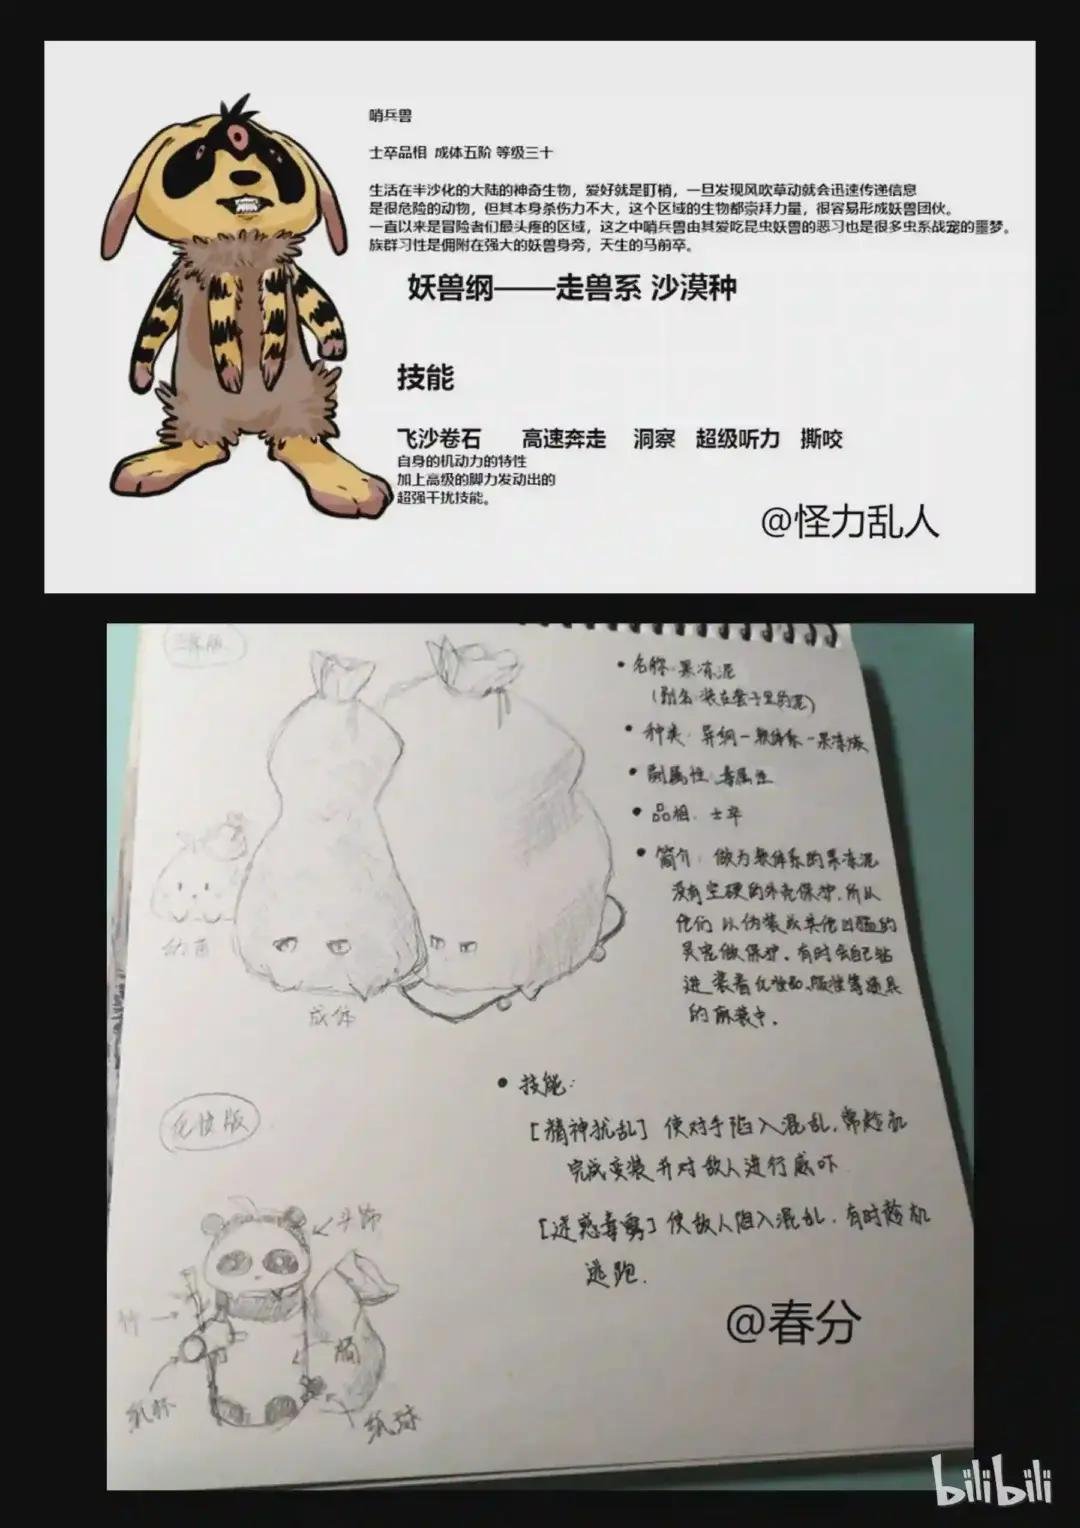 哨兵兽
士卒品相 成体五阶 等级三十
生活在半沙化的大陆的神奇生物，爱好就是盯梢，一旦发现风吹草动就会迅速传递信息
是很危险的动物，但其本身杀伤力不大，这个区域的生物都崇拜力量，很容易形成妖兽团伙。
一直以来是冒险者们最头疼的区域，这之中哨兵兽由其爱吃昆虫妖兽的恶习也是很多虫系战宠的噩梦。
族群习性是拥附在强大的妖兽身旁，天生的马前卒。
妖兽纲——走兽系 沙漠种
技能
飞沙卷石 高速奔走 洞察 超级听力 撕咬
自身的机动力的特性
加上高级的脚力发动出的
超强干扰技能。
@怪力乱人
名称：果冻泥
（别名：装在套子里的泥）
种类：异纲－软体系－果冻族
副属性：毒属性
品相：士卒
简介：做为软体系的果冻泥
没有坚硬的外壳保护，所以
他们以伪装成其他凶猛的
灵宠做保护，有时会自己钻
进装着化妆品、服性等道具
的麻袋中。
幼苗
成体
技能：
[精神扰乱] 使对手陷入混乱，常趁机
完成变装并对敌人进行威吓
[迷惑毒雾] 使敌人陷入混乱，有时趁机
逃跑.
化妆版
头饰
竹
纸球
@春分
bilibili